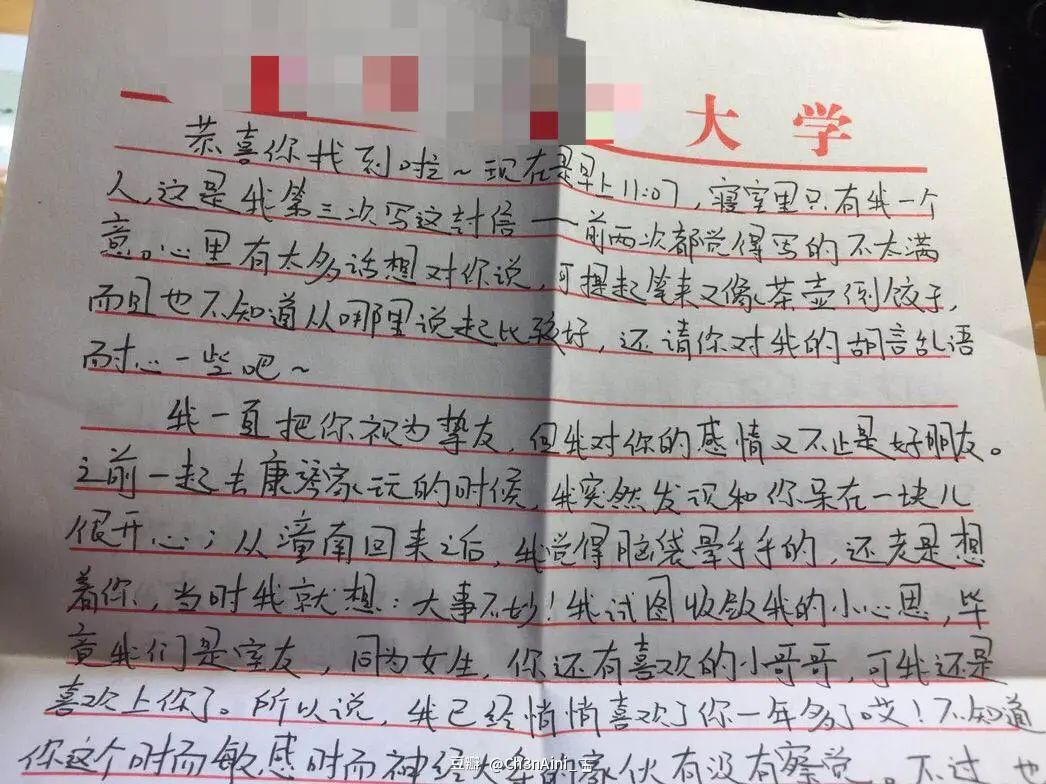 大学
恭喜你找到啦～现在是早上11:07，寝室里只有我一个
人，这是我第三次写这封信——前两次都觉得写的不太满
意。心里有太多话想对你说，可提起笔来又像茶壶倒饺子，
而且也不知道从哪里说起比较好，还请你对我的胡言乱语
耐心一些吧～
我一直把你视为挚友，但我对你的感情又不止是好朋友。
之前一起去康家玩的时候，我突然发现和你呆在一块儿
很开心；从潼南回来之后，我觉得脑袋晕乎乎的，还老是想
着你，当时我就想：大事不妙！我试图收敛我的小心思，毕
竟我们是室友，同为女生，你还有喜欢的小哥哥，可我还是
喜欢上你了。所以说，我已经悄悄喜欢了你一年多了哎！不知道
你这个时而敏感时而神经大条的家伙有没有察觉。不过，也
豆瓣 @Ch3nAini_